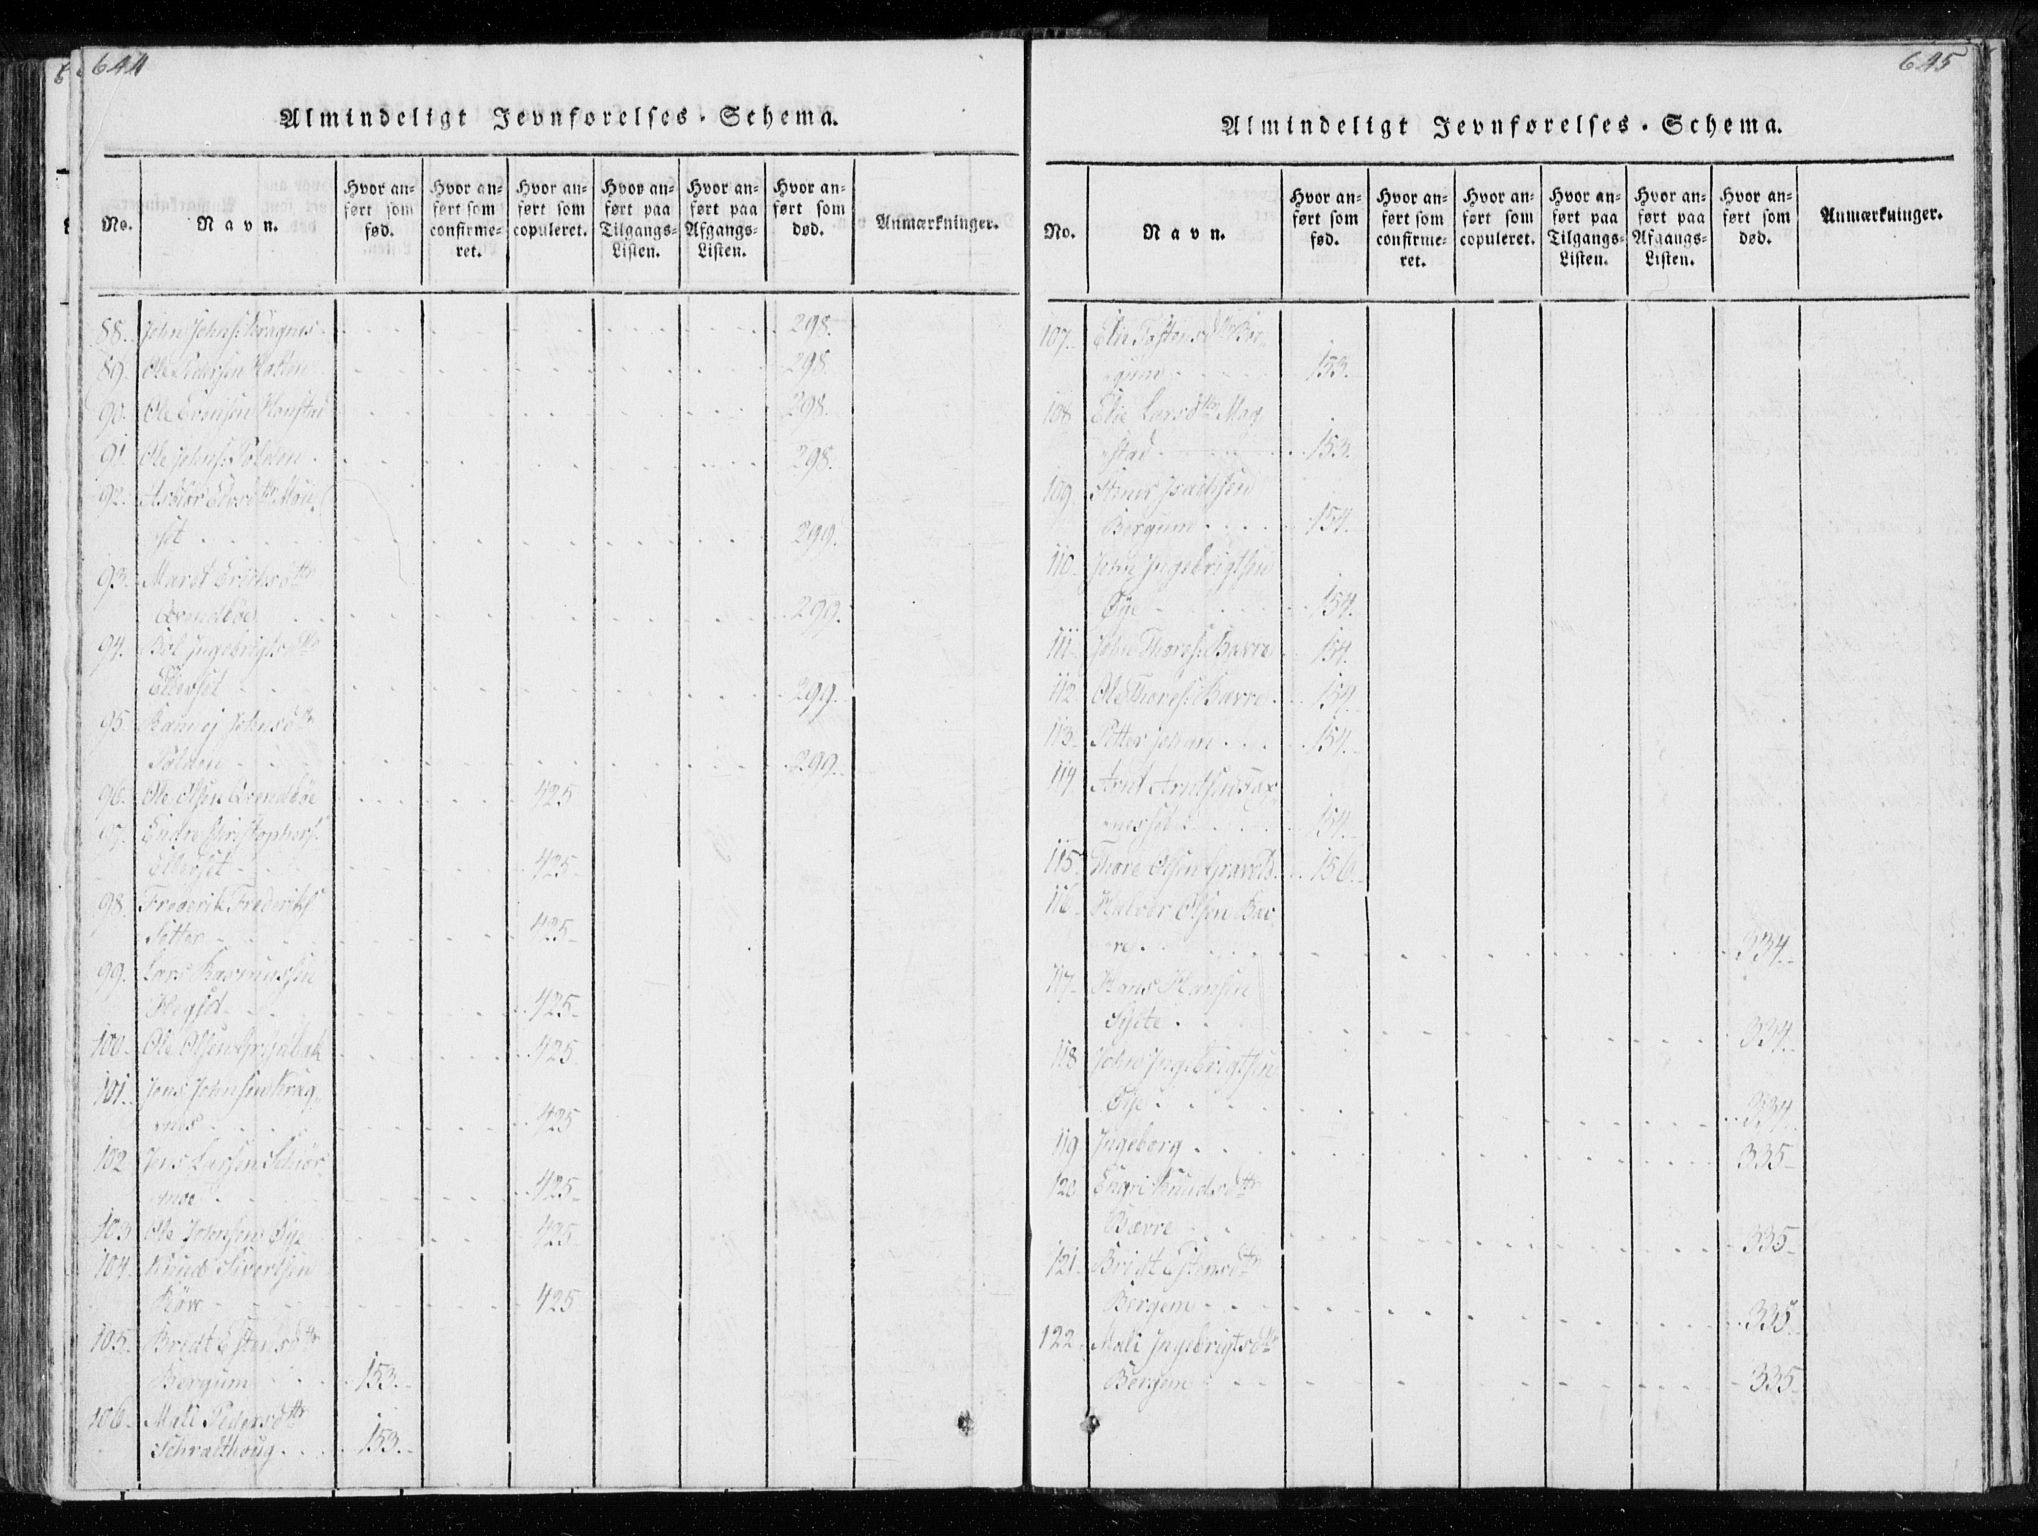 644
Almindeligt Jevnførelses-Schema.
No.
Navn.
Hvor anført som fød.
Hvor anført som confirmeret.
Hvor anført som copuleret.
Hvor anført paa Tilgangs-Listen.
Hvor anført paa Afgangs-Listen.
Hvor anført som død.
Anmærkninger.
88. John Johns. Kragnes 298.
89. Ole Pedersen 298.
90. Ole 298.
91. Ole Johns. Polden 298.
92.
set 299.
93. Marit Ericksdtr
Qvendbøe 299.
94. Ingebrigtsdtr
Elverset 299.
95. Johnsdtr
Polden 299.
96. Ole Olsen Qvendbøe 425
97. Endre Christophers.
Elverset 425.
98. Frederik Frederiks.
425.
99. Lars Rasmussen
425.
100. Ole Olsen 425.
101. Jens Johnsen Krag-
nes 425
102 Jens Larsen
moe 425.
103 Ole Johnsen Øye 425.
104. Knud Sivertsen
425
105. Bredt Estensdtr
Bergum 153.
106. Mali Pedersdtr
153.
645
Almindeligt Jevnførelses-Schema.
No.
Navn.
Hvor anført som fød.
Hvor anført som confirmeret.
Hvor anført som copuleret.
Hvor anført paa Tilgangs-Listen.
Hvor anført paa Afgangs-Listen.
Hvor anført som død.
Anmærkninger.
107. Elie Tostensdtr Ber-
gum 153.
108 Elie Larsdtr Mog-
stad 153.
109.
Bergum 154.
110. John Ingebrigtsen
Øye 154.
111. John Thores. Bævre 154.
112. Ole Thores. Bævre 154.
113. Petter Johan 154.
114 Arnt Arntsen
154.
115. Thore Olsen 156.
116. Halvor Olsen Bæv-
re. 334.
117. Hans Hansen
334.
118 John Ingebrigtsen
Øye 334.
119 Ingeborg 335.
120 Knudsdtr
Bævre 335.
121. Bredt Estensdtr
Bergem 335.
122. Mali Ingebrigtsdtr
Bergem 335.